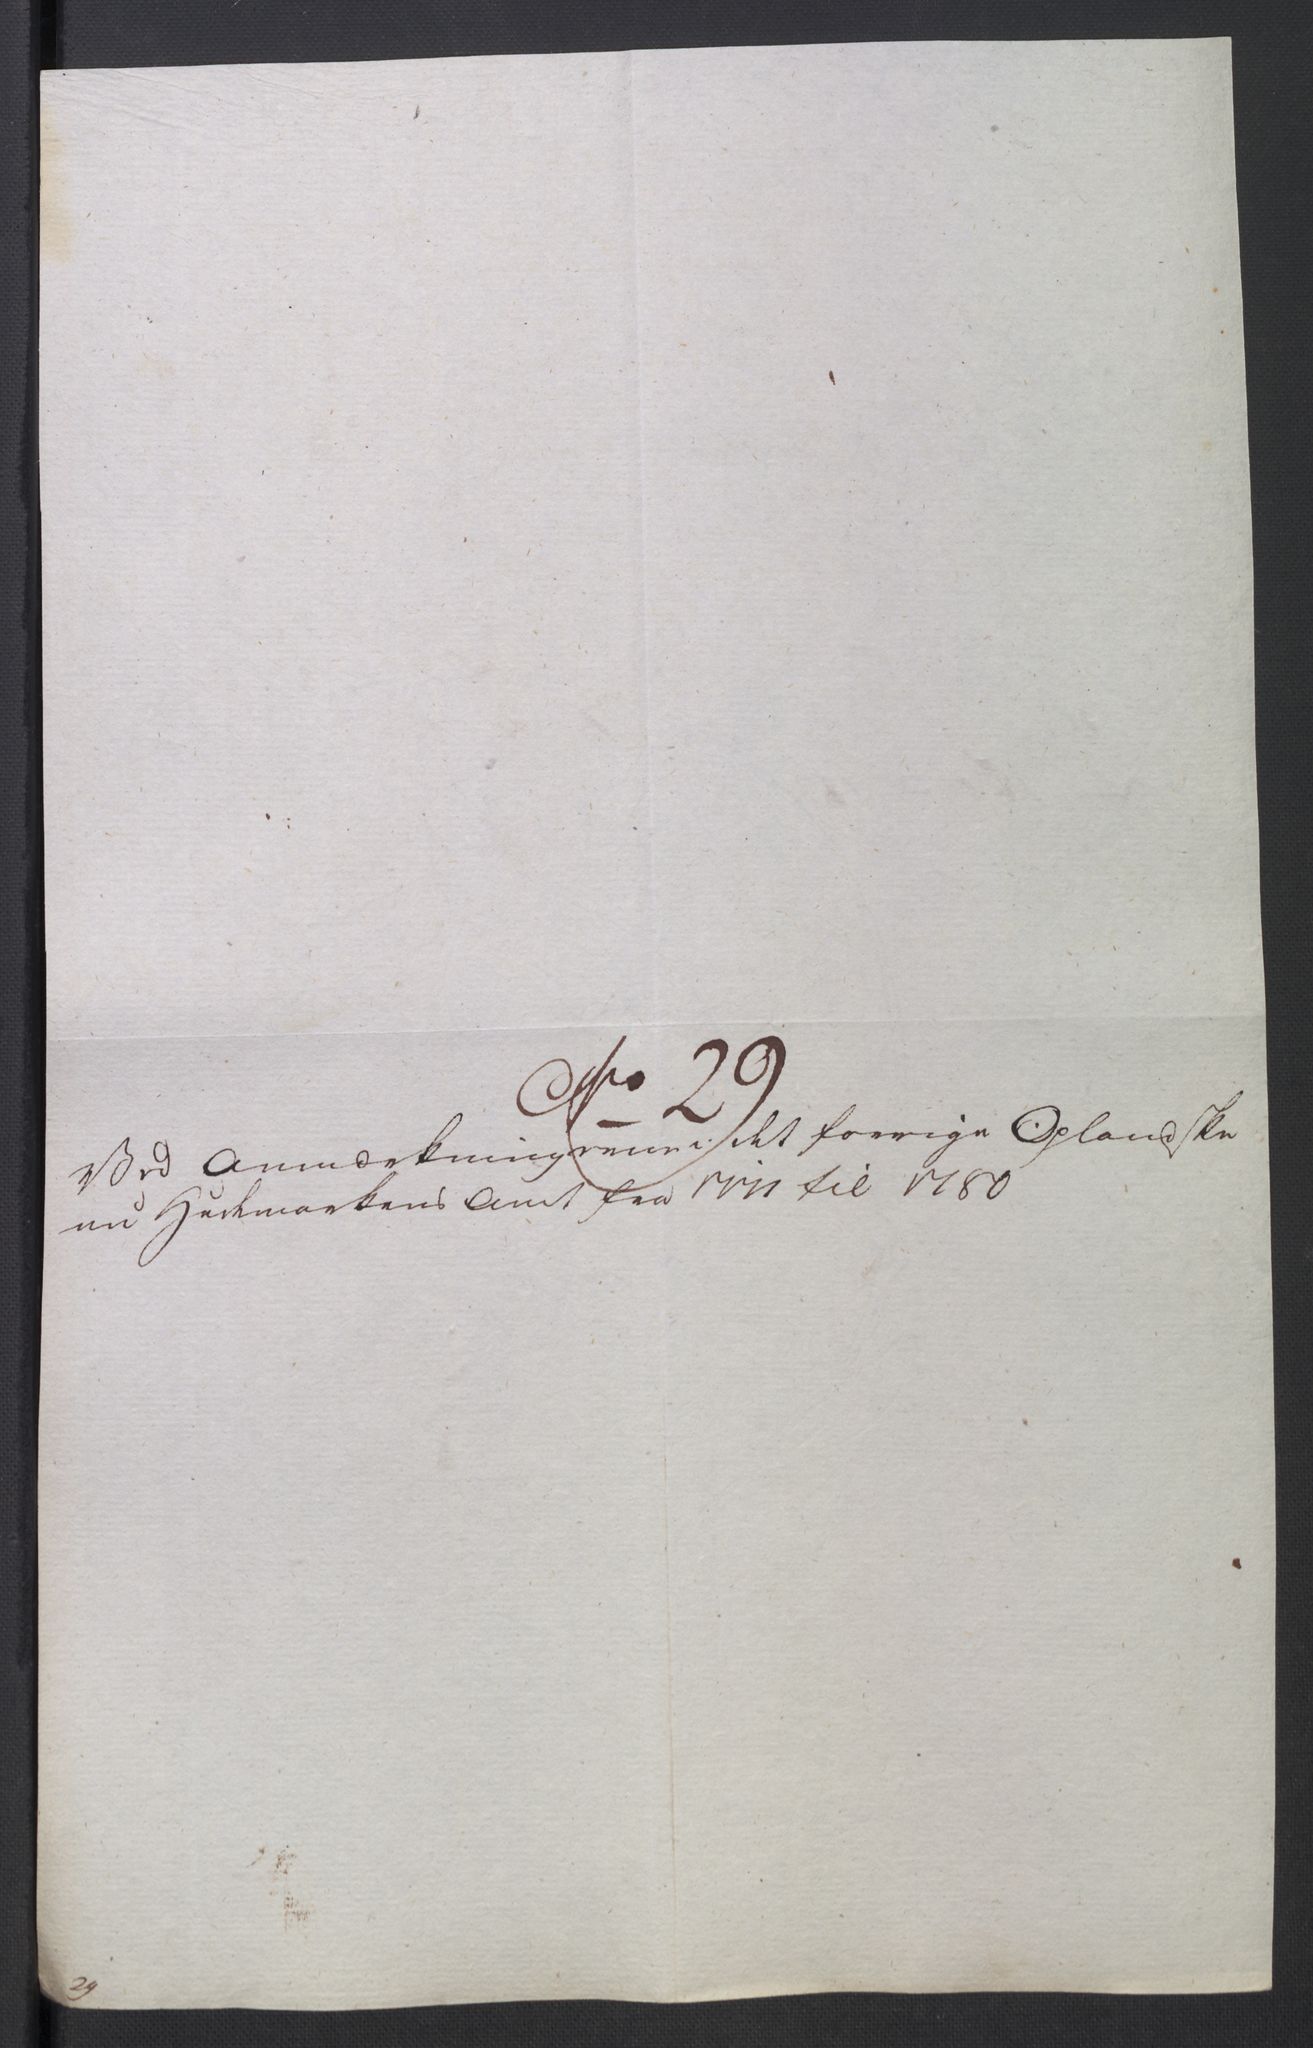 No 29
Ved Anmærkningerne i det forrige Oplandske
nu Hedemarkens Amt fra 1771 til 1780
29